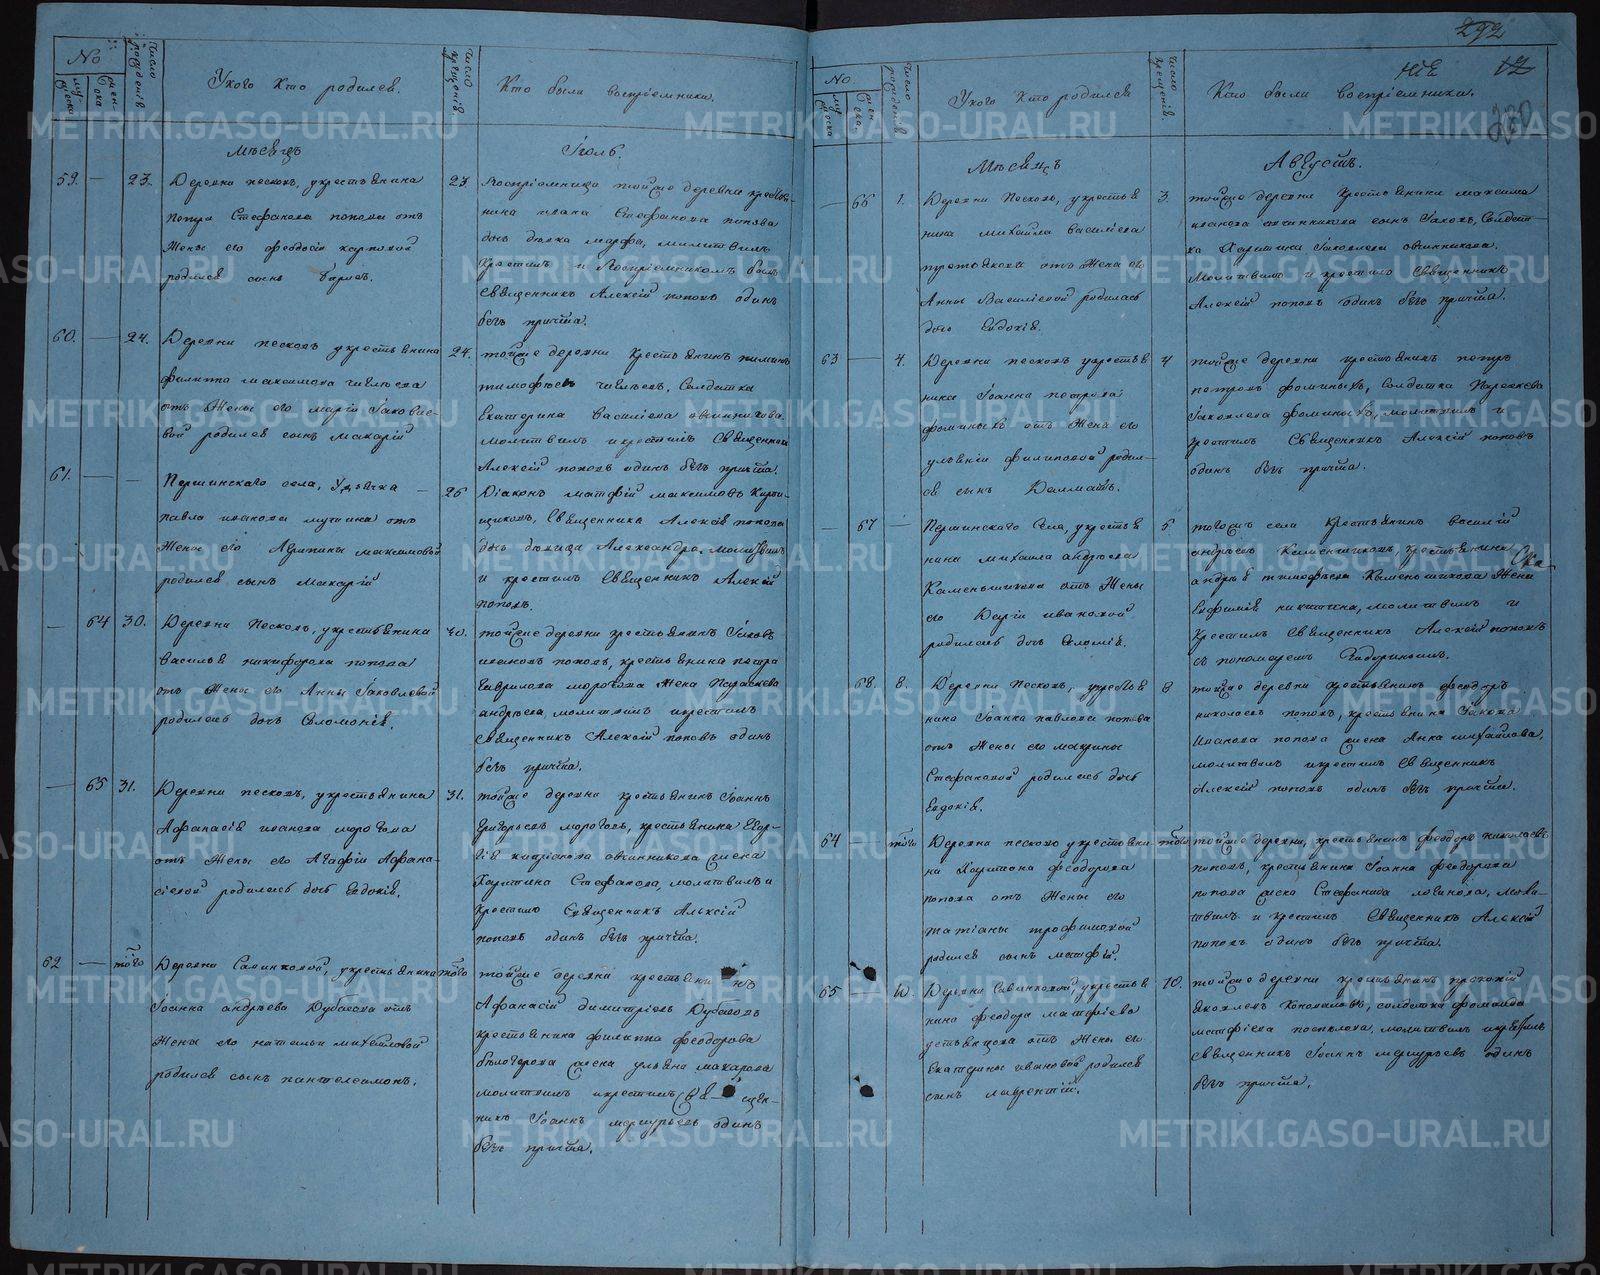 292
НІЕ 12
220
№
мужеска
женска
Число рожденія
У кого кто родился.
Число крещенія.
Кто были воспріемники.
Мѣсяцъ
Іюль.
59. — 23.
Деревни песковъ, укрестьянина
Петра Стефанова попова отъ
Жены его феодосіи карповой
родился сынъ
23
Воспріемница тойже деревни крестья-
нина ивана Стефанова попова
дочь девка марфа, молитвилъ
Крестилъ и Воспріемникомъ былъ
Священникъ Алексій поповъ одинъ
безъ причта.
60. — 24.
Деревни песковъ укрестьянина
филиппа максимова
отъ Жены его маріи Іаковле-
вой родился сынъ макарій
24.
тойже деревни Крестьянинъ
тимофѣевъ Солдатка
Екатерина василіева овчинникова
молитвилъ и крестилъ Священникъ
Алексій поповъ одинъ безъ причта.
61. — —
Першинскаго села, Удьячка —
павла иванова
Жены его максимовой
родился сынъ Макарій
26
Діаконъ матфій максимовъ
Священника Алексія попова
дочь девица Александра, молитвилъ
и крестилъ Священникъ Алексій
поповъ.
— 64 30.
Деревни Песковъ, укрестьянина
Василья никифорова попова
отъ Жены его Анны Іаковлевой
родилась дочь Соломонія.
30.
тойже деревни крестьянинъ Іаковъ
ивановъ поповъ, крестьянина петра
Гаврилова морогова Жена Параскева
андрѣева, молитвилъ икрестилъ
Священникъ Алексій поповъ одинъ
безъ причта.
— 65 31.
Деревни песковъ, укрестьянина
Афанасія иванова морогова
отъ Жены его Агафіи Афана-
сіевой родилась дочь Евдокія.
31.
тойже деревни крестьянинъ Іоаннъ
Григорьевъ мороговъ, крестьянина
овчинникова жена
Стефанова, молитвилъ и
Крестилъ Священникъ Алексій
поповъ одинъ безъ причта.
62 — того
Деревни Савинковой, укрестьянина
Іоанна андрѣева Дубасова отъ
Жены его натальи михайловой
родился сынъ пантелеимонъ.
того
тойже деревни крестьянинъ
Афанасій димитріевъ Дубасовъ
Крестьянина филиппа феодорова
жена ульяна макарова
молитвилъ икрестилъ Священ-
никъ Іоаннъ меркурьевъ одинъ
безъ причта.
№
мужеска
женска.
Число рожденія
У кого кто родился
Число крещенія.
Кто были воспріемники.
Мѣсяцъ
Августъ.
— 66 1.
Деревни Песковъ, укрестья
нина михаила василіева
отъ Жены его
Анны Василіевой родилась
дочь Евдокія.
3.
тойже деревни Крестьянина максима
иванова овчинникова сынъ Іаковъ, Солдат-
ка Іаковлева овчинникова.
Молитвилъ и крестилъ Священникъ
Алексій поповъ одинъ безъ причта.
63 — 4.
Деревни песковъ укрестья
нина Іоанна петрова
фоминыхъ отъ Жены его
филиповой родил-
ся сынъ Далматъ.
4
тойже деревни крестьянинъ петръ
петровъ фоминыхъ, солдатка Параскева
Іаковлева фоминыхъ, молитвилъ и
крестилъ Священникъ Алексій поповъ
одинъ безъ причта.
— 67 —
Першинскаго Села, укрестья
нина михаила андрѣева
Каменьшикова отъ Жены
его Даріи ивановой
родилась дочь Соломія.
5
тогожъ села Крестьянинъ василій
андрѣевъ Каменшиковъ, крестьянина
андрея тимофѣева Каменьшикова Жена
Евфимія никитина, молитвилъ и
Крестилъ Священникъ Алексій поповъ
съ пономаремъ
— 68. 8.
Деревни Песковъ, укрестья
нина Іоанна павлова попова
отъ Жены его макрины
Стефановой родилась дочь
Евдокія.
8
тойже деревни крестьянинъ феодоръ
николаевъ поповъ, крестьянина Іакова
Иванова попова жена Анна михайлова,
молитвилъ икрестилъ Священникъ
Алексій поповъ одинъ безъ причта.
64 — того
Деревни песковъ укрестьяни
на Харитона феодорова
попова отъ Жены его
татіаны трофимовой
родился сынъ матфій.
того
тойже деревни, крестьянинъ феодоръ николаевъ
поповъ, крестьянина Іоанна феодорова
попова жена Стефанида логинова, моли-
твилъ и крестилъ Священникъ Алексій
поповъ одинъ безъ причта.
65 10.
Деревни Савинковой, укрестья
нина феодора матфіева
отъ Жены его
Екатерины ивановой родился
сынъ лаврентій.
10.
тойже деревни крестьянинъ прокопій
Яковлевъ Коноваловъ, солдатка
матфіева поспелова, молитвилъ икрестилъ
священникъ Іоаннъ меркурьевъ одинъ
безъ причта.
METRIKI.GASO-URAL.RU